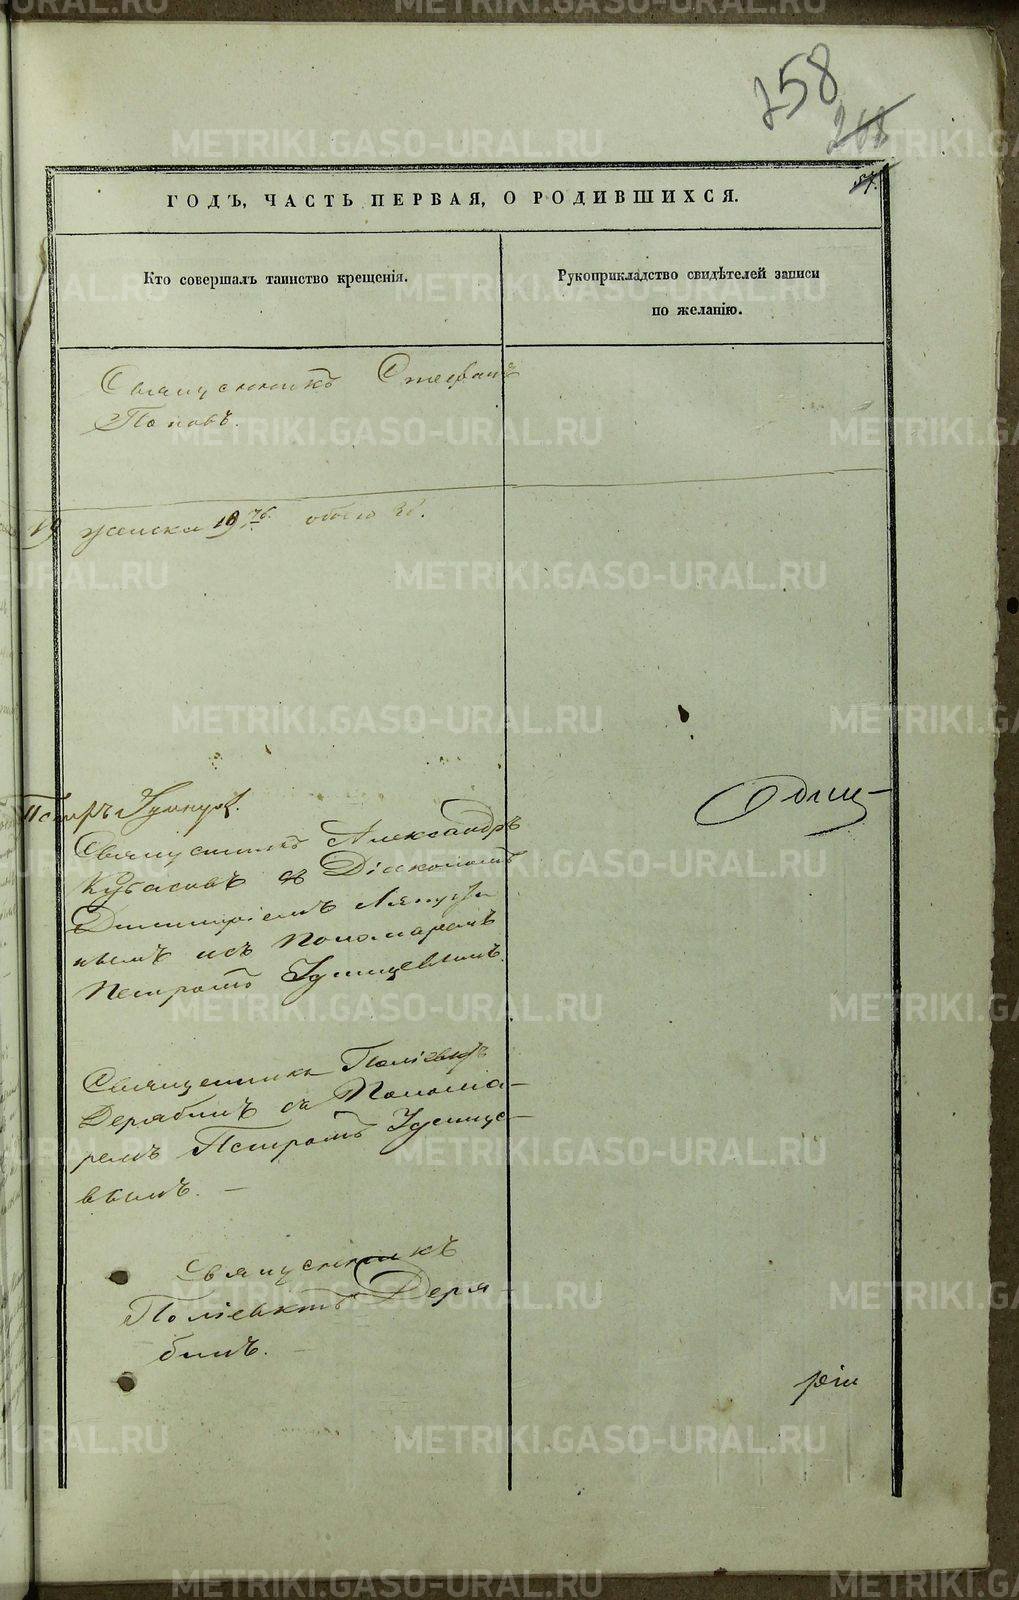 258
268
57.
ГОДЪ, ЧАСТЬ ПЕРВАЯ, О РОДИВШИХСЯ.
Кто совершалъ таинство крещенія.
Рукоприкладство свидѣтелей записи
по желанію.
Священникъ Стефанъ
Поповъ.
19 женска 19
Петръ
Священникъ Александръ
Кубасовъ съ Діакономъ
Димитріемъ
Пономаремъ
Петромъ
Священникъ Поліевктъ
Дерябинъ съ Понома-
ремъ Петромъ
вымъ. –
Священникъ
Поліевктъ Деря-
бинъ.
ріи
METRIKI.GASO-URAL.RU